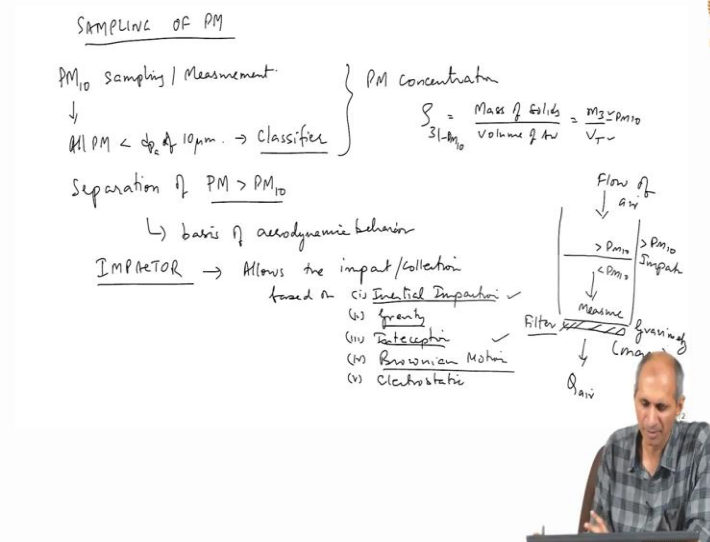 SAMPLING OF PM
PM10 Sampling / Measurement
↓
All PM < dpa of 10μm. → Classifier
PM concentration
ρ31-PM10 = Mass of Solids / Volume of Air = m3 PM10 / VT
Separation of PM > PM10
↳ basis of aerodynamic behavior
IMPACTOR → Allows the impact/collection
based on (i) Inertial Impaction ✓
(ii) Gravity
(iii) Interception ✓
(iv) Brownian Motion
(v) Electrostatic
Flow of
air
> PM10
> PM10
Impact
< PM10
Measure
Filter
Gravimetry
Qair